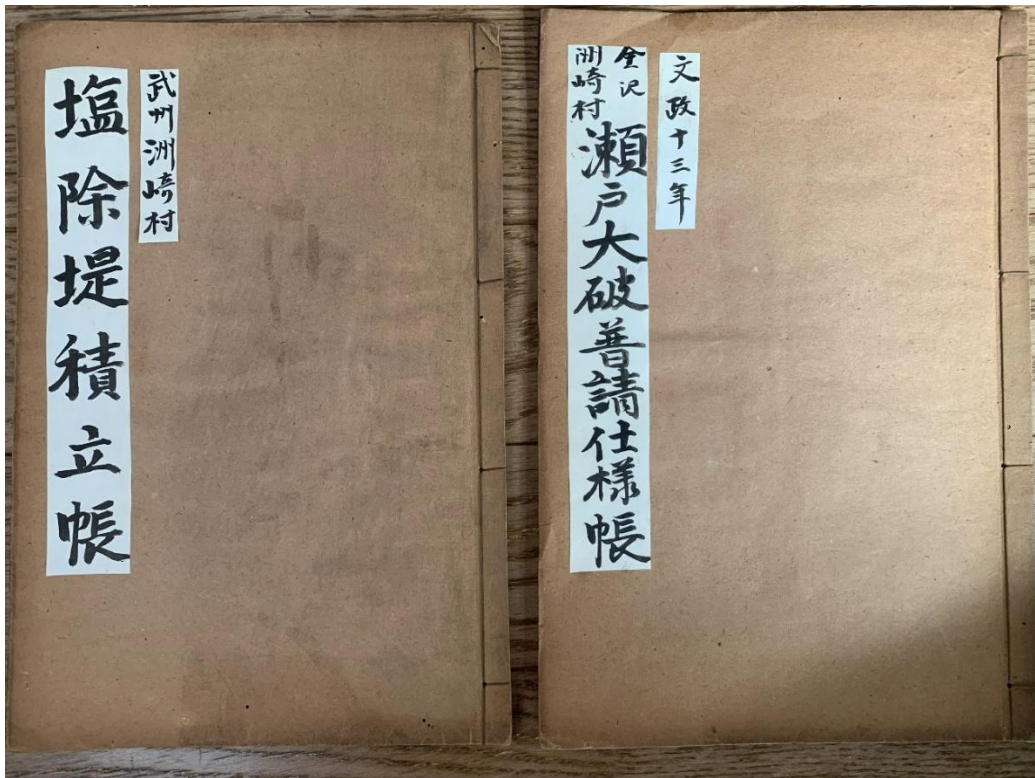 文政十三年
金沢
洲崎村
瀬戸大破普請仕様帳
武州洲崎村
塩除堤積立帳